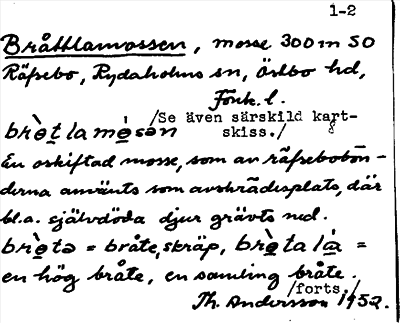 1-2
Bråttlamossen, mosse 300 m SO
Räfsebo, Rydaholms sn, Östbo hd,
Jönk. l.
/Se även särskild kart-
skiss./
En oskiftad mosse, som av räfsebobön-
derna använts som avskrädesplats, där
bl.a. självdöda djur grävts ned.
= bråte, skräp,
=
en hög bråte, en samling bråte.
/forts./
Th. Andersson 1952.